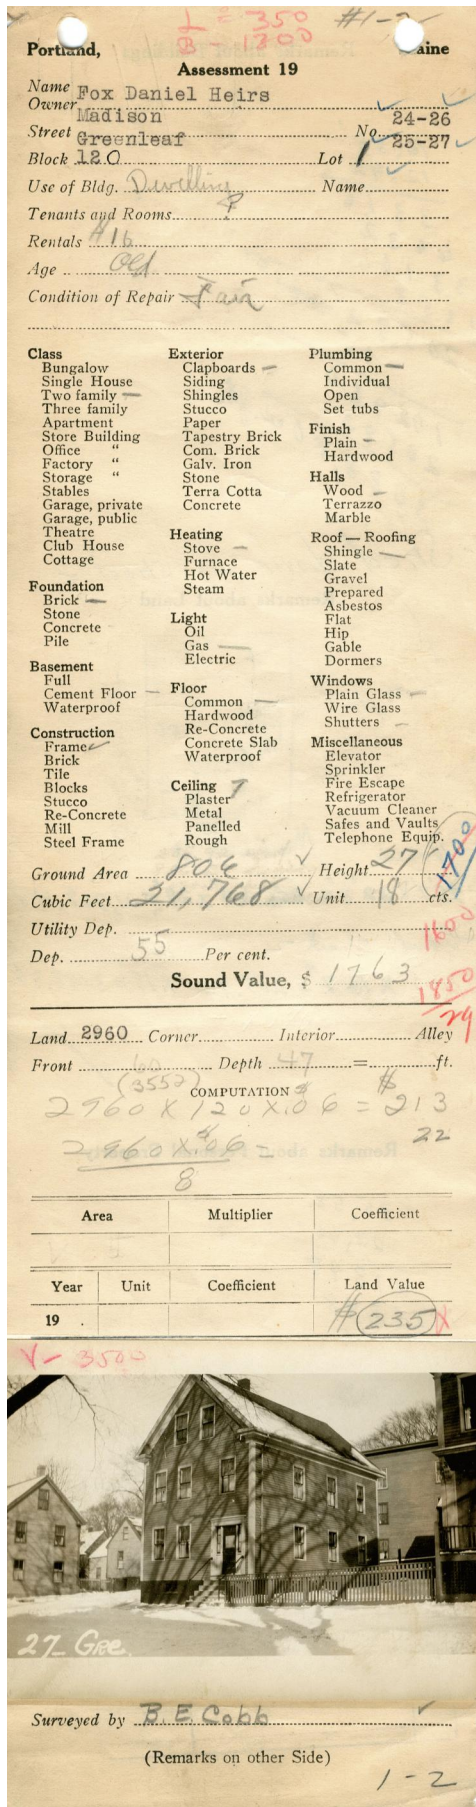 L = 350
B = 1300
#1-2
Portland, Maine
Assessment 19
Name
Owner Fox Daniel Heirs
Madison 24-26
Street Greenleaf No. 25-27
Block 120 Lot 1
Use of Bldg. Dwelling Name
Tenants and Rooms
Rentals #16
Age Old
Condition of Repair Fair
Class
Bungalow
Single House
Two family —
Three family
Apartment
Store Building
Office "
Factory "
Storage "
Stables
Garage, private
Garage, public
Theatre
Club House
Cottage
Foundation
Brick —
Stone
Concrete
Pile
Basement
Full
Cement Floor —
Waterproof
Construction
Frame ✓
Brick
Tile
Blocks
Stucco
Re-Concrete
Mill
Steel Frame
Exterior
Clapboards —
Siding
Shingles
Stucco
Paper
Tapestry Brick
Com. Brick
Galv. Iron
Stone
Terra Cotta
Concrete
Heating
Stove —
Furnace
Hot Water
Steam
Light
Oil
Gas —
Electric
Floor
Common —
Hardwood
Re-Concrete
Concrete Slab
Waterproof
Ceiling
Plaster
Metal
Panelled
Rough
Plumbing
Common —
Individual
Open
Set tubs
Finish
Plain —
Hardwood
Halls
Wood —
Terrazzo
Marble
Roof — Roofing
Shingle —
Slate
Gravel
Prepared
Asbestos
Flat
Hip
Gable
Dormers
Windows
Plain Glass —
Wire Glass
Shutters —
Miscellaneous
Elevator
Sprinkler
Fire Escape
Refrigerator
Vacuum Cleaner
Safes and Vaults
Telephone Equip.
Ground Area 806 ✓ Height 27 1700
Cubic Feet 21,768 ✓ Unit 18 cts.
Utility Dep. 1600
Dep. 55 Per cent.
Sound Value, $ 1763 1850
29
Land 2960 Corner Interior Alley
Front 60 Depth 47 = ft.
(3552)
COMPUTATION
2960 X 120 X .06 = $213
2960 X .06 = 22
8
Area Multiplier Coefficient
Year Unit Coefficient Land Value
19 . $ 235 X
V- 3500
27 Gre.
Surveyed by B. E. Cobb
(Remarks on other Side)
1-2